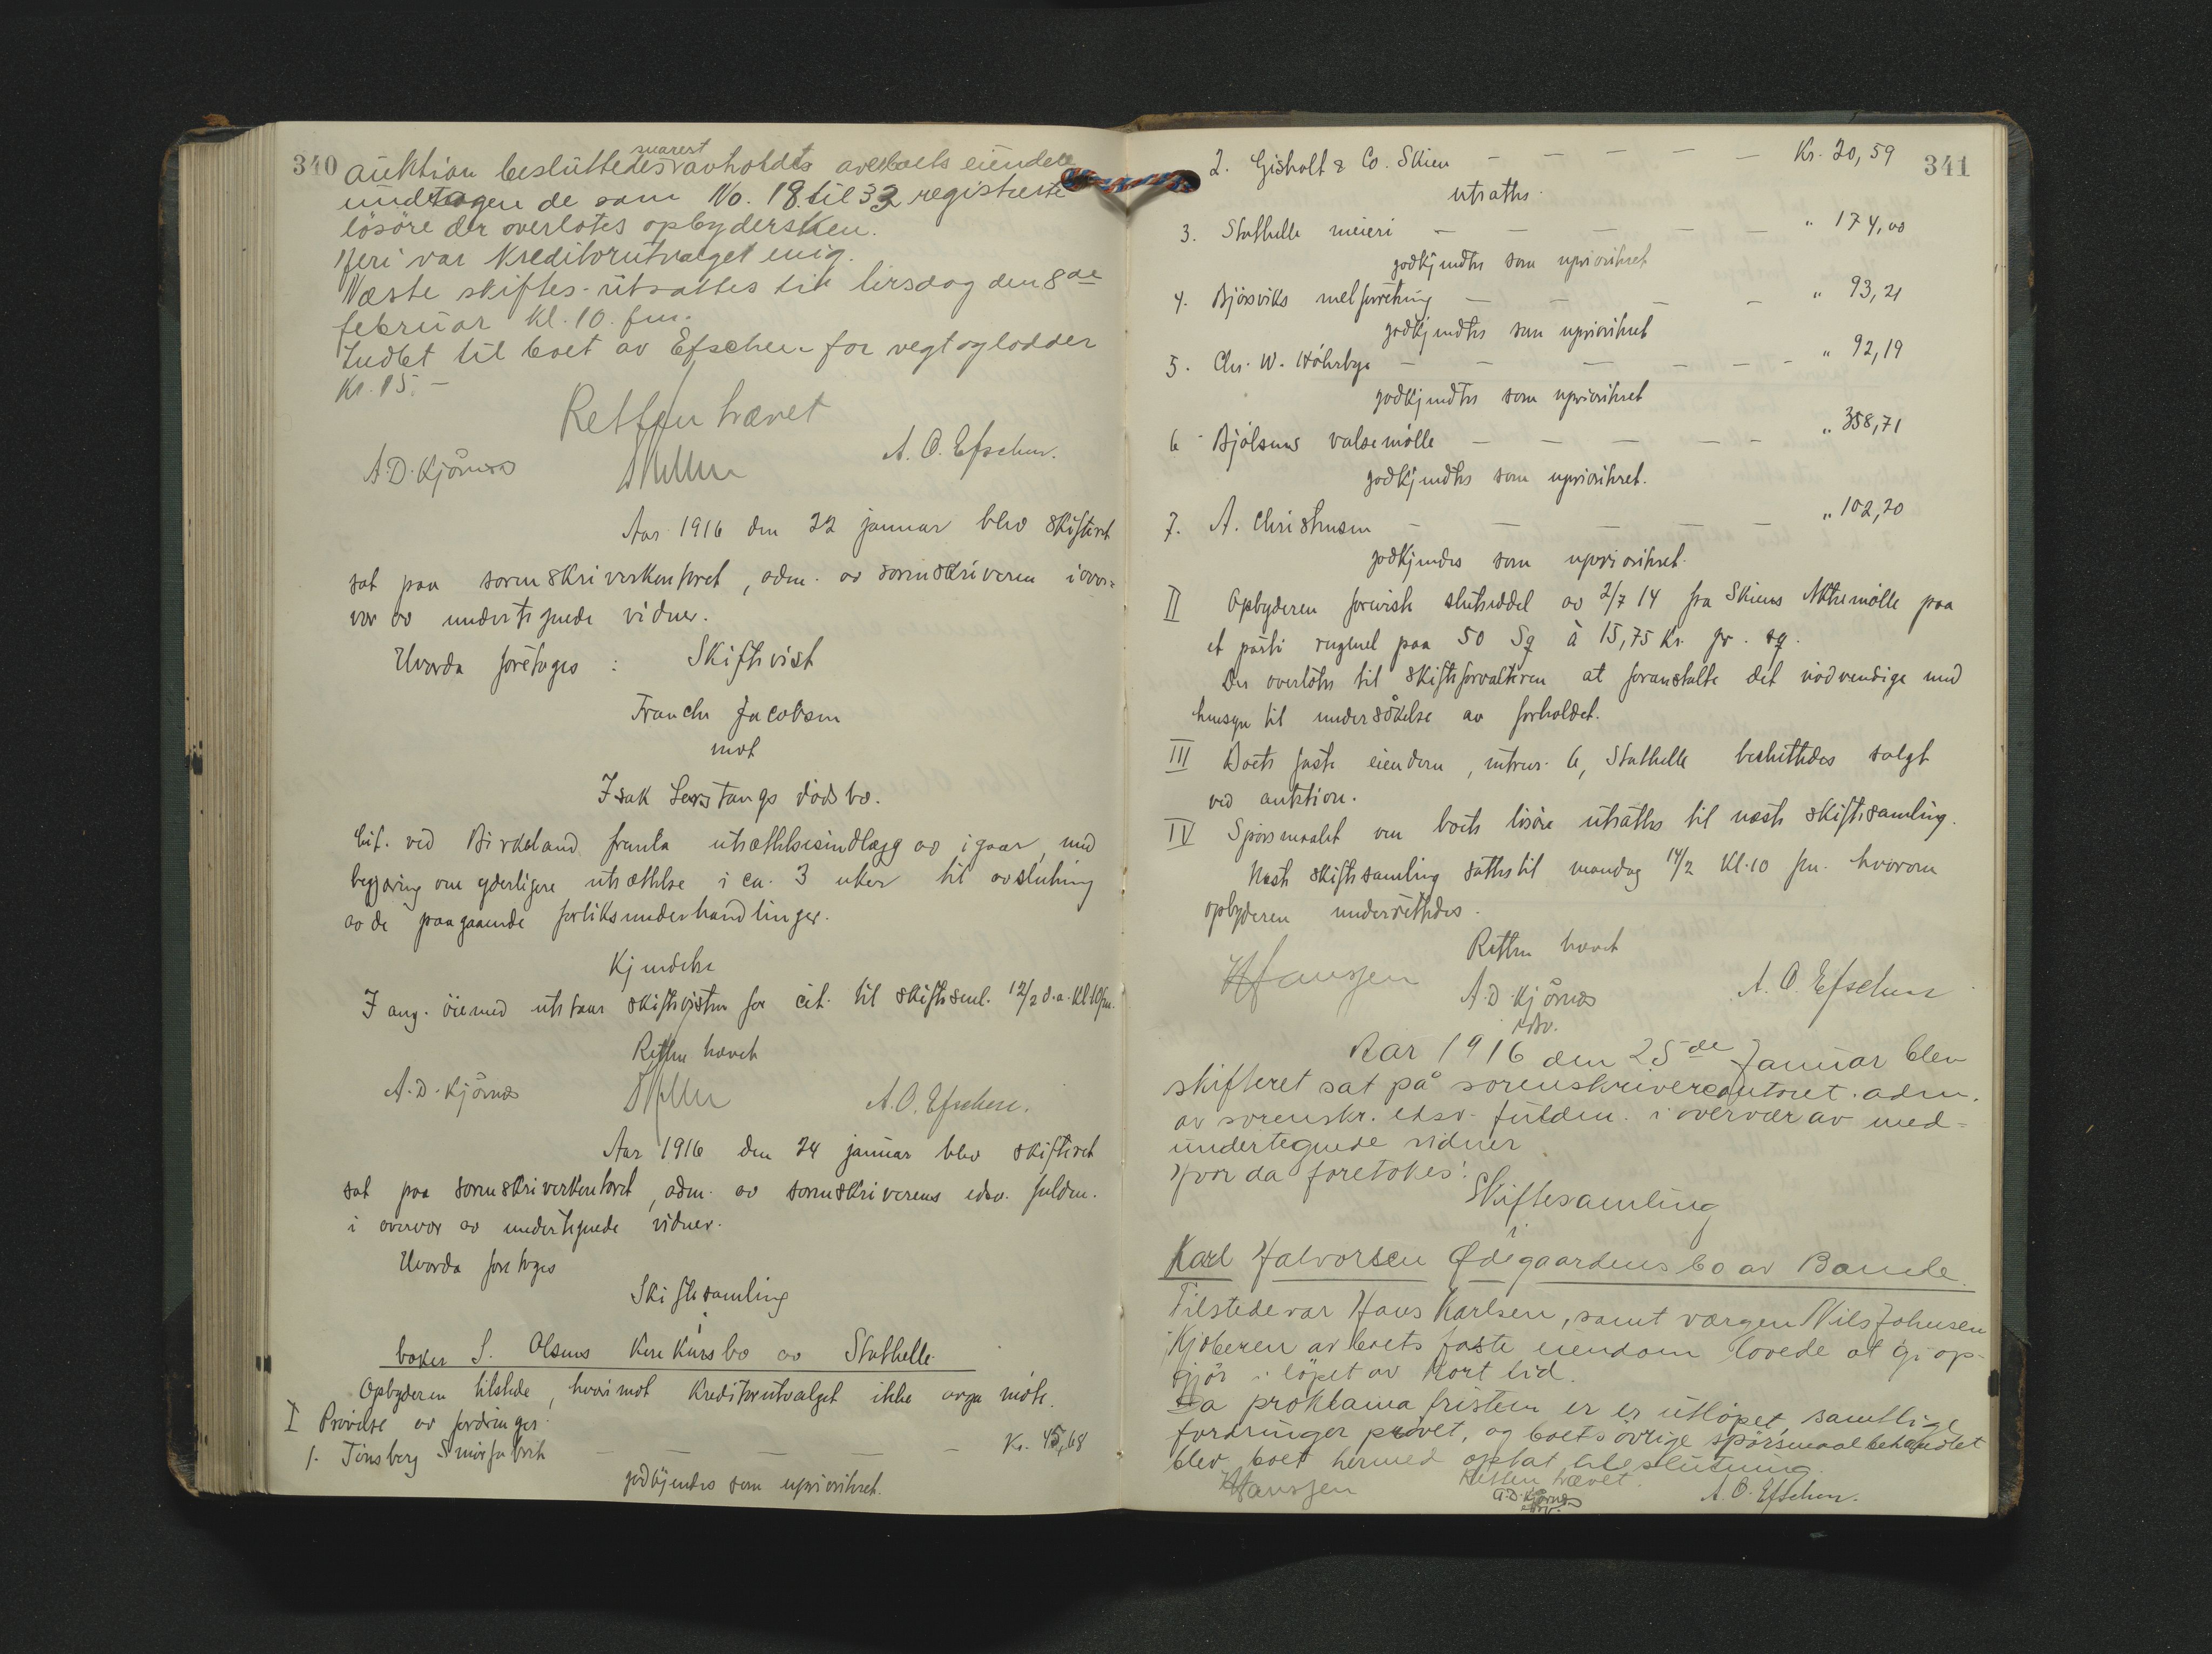 340
auktion besluttedes snarest avholdts over boets eiendele
undtagen de som No. 18 til 33 registrerte
lösöre der overlotes opbydersken.
Heri var Kreditorutvalget enig.
Næste skiftes- utsattes til tirsdag den 8de
februar Kl. 10. fm.
Indbt til boet av Efschen for vegt og lodder
Kr. 15.-
Retten hævet
A.D. Kjörnæs
A. O. Efschen.
Aar 1916 den 22 januar blev skifteret
sat paa sorenskriverkontoret, adm. av sorenskriveren i over=
vær av undertegnede vidner.
Hvorda foretoges : Skiftetvist
Franchi Jacobsen
mot
Isak Serstangs dödsbo.
Cit. ved Birkeland fremla utsættelsesindlægg av igaar, med
begjæring om yderligere utsættelse i ca. 3 uker til avslutning
av de paagaaende forliksunderhandlinger.
Kjendelse
I ang. öiemed utstaar skiftetvisten for cit. til skiftesml. 12/2 d.a. Kl. 10 fm.
Retten hævet
A.D. Kjörnæs
A. O. Efschen.
Aar 1916 den 24 januar blev skifteret
sat paa sorenskriverkontoret, adm. av sorenskriverens edsv. fuldm.
i overvær av undertegnede vidner.
Hvorda foretoges
Skiftesamling
i
baker S. Olsens Konkursbo av Stathelle
Opbyderen tilstede, hvorimot Kreditorutvalget ikke avga möte.
I Prövelse av fordringer.
1. Tönsberg Smörfabrik — — — — — Kr. 45,68
godkjendtes som uprioritert.
341
2. Gisholt & Co. Skien — — — — — Kr. 20,59
utsattes.
3. Stathelle meieri — — — — — " 174,00
godkjendtes som uprioritert
4. Bjørsviks melforretning — — — — " 93,21
godkjendtes som uprioritert
5. Chr. W. — — — — — " 92,19
godkjendtes som uprioritert
6 - Bjölsens valsemölle — — — — — " 358,71
godkjendtes som uprioritert.
7. A. Christensen — — — — — " 102,20
godkjendes som uprioritert.
II Opbyderen foreviste slutseddel av 2/7 14 fra Skiens Aktiemölle paa
et parti rugmel paa 50 Sq à 15,75 Kr. pr. sq.
Det overlotes til skifteforvalteren at foranstalte det nödvendige med
hensyn til undersökelse av forholdet.
III Boets faste eiendom, mtrnr. 6, Stathelle besluttedes solgt
ved auktion.
IV Spörsmaalet om boets lösöre utsattes til næste skiftesamling.
Næste skiftesamling sattes til mandag 14/2 Kl. 10 fm. hvorom
opbyderen underrettedes.
Retten hævet
HHanssen
A.D. Kjörnæs
edsv.
A. O. Efschen
Aar 1916 den 25de Januar blev
skifteret sat på sorenskrivercontoret. adm.
av sorenskr. edsv. fuldm. i overvær av med=
undertegnede vidner
Hvor da foretokes:
Skiftesamling
i
Karl Halvorsen Ødegaardens bo av Bamle.
Tilstede var Hans Karlsen, samt værgen Nils Johnsen
Kjöberen av boets faste eiendom lovede at gi op-
gjör i löpet av Kort tid.
Da proklama fristen er er utlöpet, samtlige
fordringer prövet, og boets övrige spörsmaal behandlet
blev boet hermed optat til slutning.
Retten hævet.
HHanssen
A.D. Kjörnæs
edsv.
A. O. Efschen.